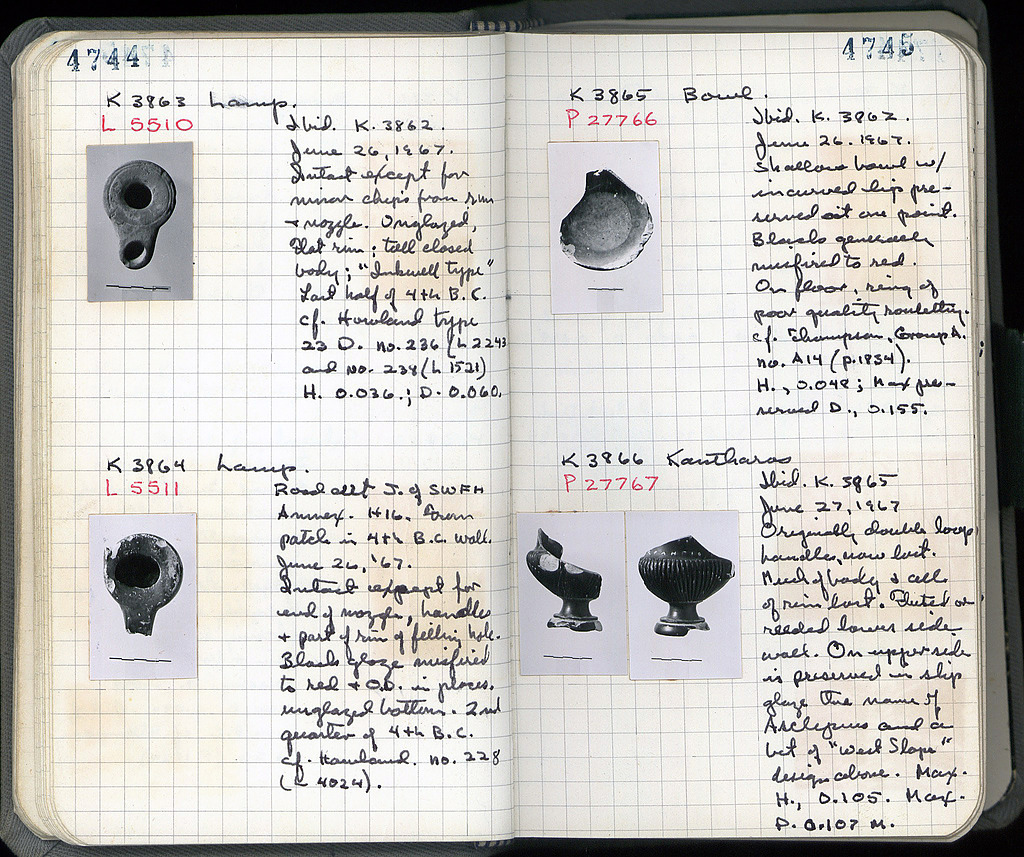 4744
K 3863 Lamp.
L 5510
Ibid. K. 3862.
June 26, 1967.
Intact except for
minor chips from rim
+ nozzle. Unglazed,
flat rim; tall closed
body; "Inkwell type"
Last half of 4th B.C.
cf. Howland type
23 D. no. 236 (L 2243
and no. 238 (L 1521)
H. 0.036.; D. 0.060.
K 3864 Lamp.
L 5511
Road allt S. of SWFH
Annex. H16. From
patch in 4th B.C. wall.
June 26, '67.
Intact except for
end of nozzle, handle
+ part of rim of filling hole.
Black glaze misfired
to red + O.D. in places.
unglazed bottom. 2nd
quarter of 4th B.C.
cf. Howland. no. 228
(L 4024).
4745
K 3865 Bowl.
P 27766
Ibid. K. 3862.
June 26. 1967.
Shallow bowl w/
incurved lip pre-
served at one point.
Black generally
misfired to red.
On floor, ring of
poor quality rouletting.
cf. Thompson, Group A.
no. A14 (p.1834).
H., 0.048; Max pre-
served D., 0.155.
K 3866 Kantharos
P 27767
Ibid. K. 3865
June 27, 1967
Originally double loop
handles, now lost.
Much of body & all
of rim lost. Fluted or
reeded lower side
wall. On upper side
is preserved in slip
glaze the name of
Asclepius and a
bit of "West Slope"
design above. Max.
H., 0.105. Max.
P. 0.107 M.